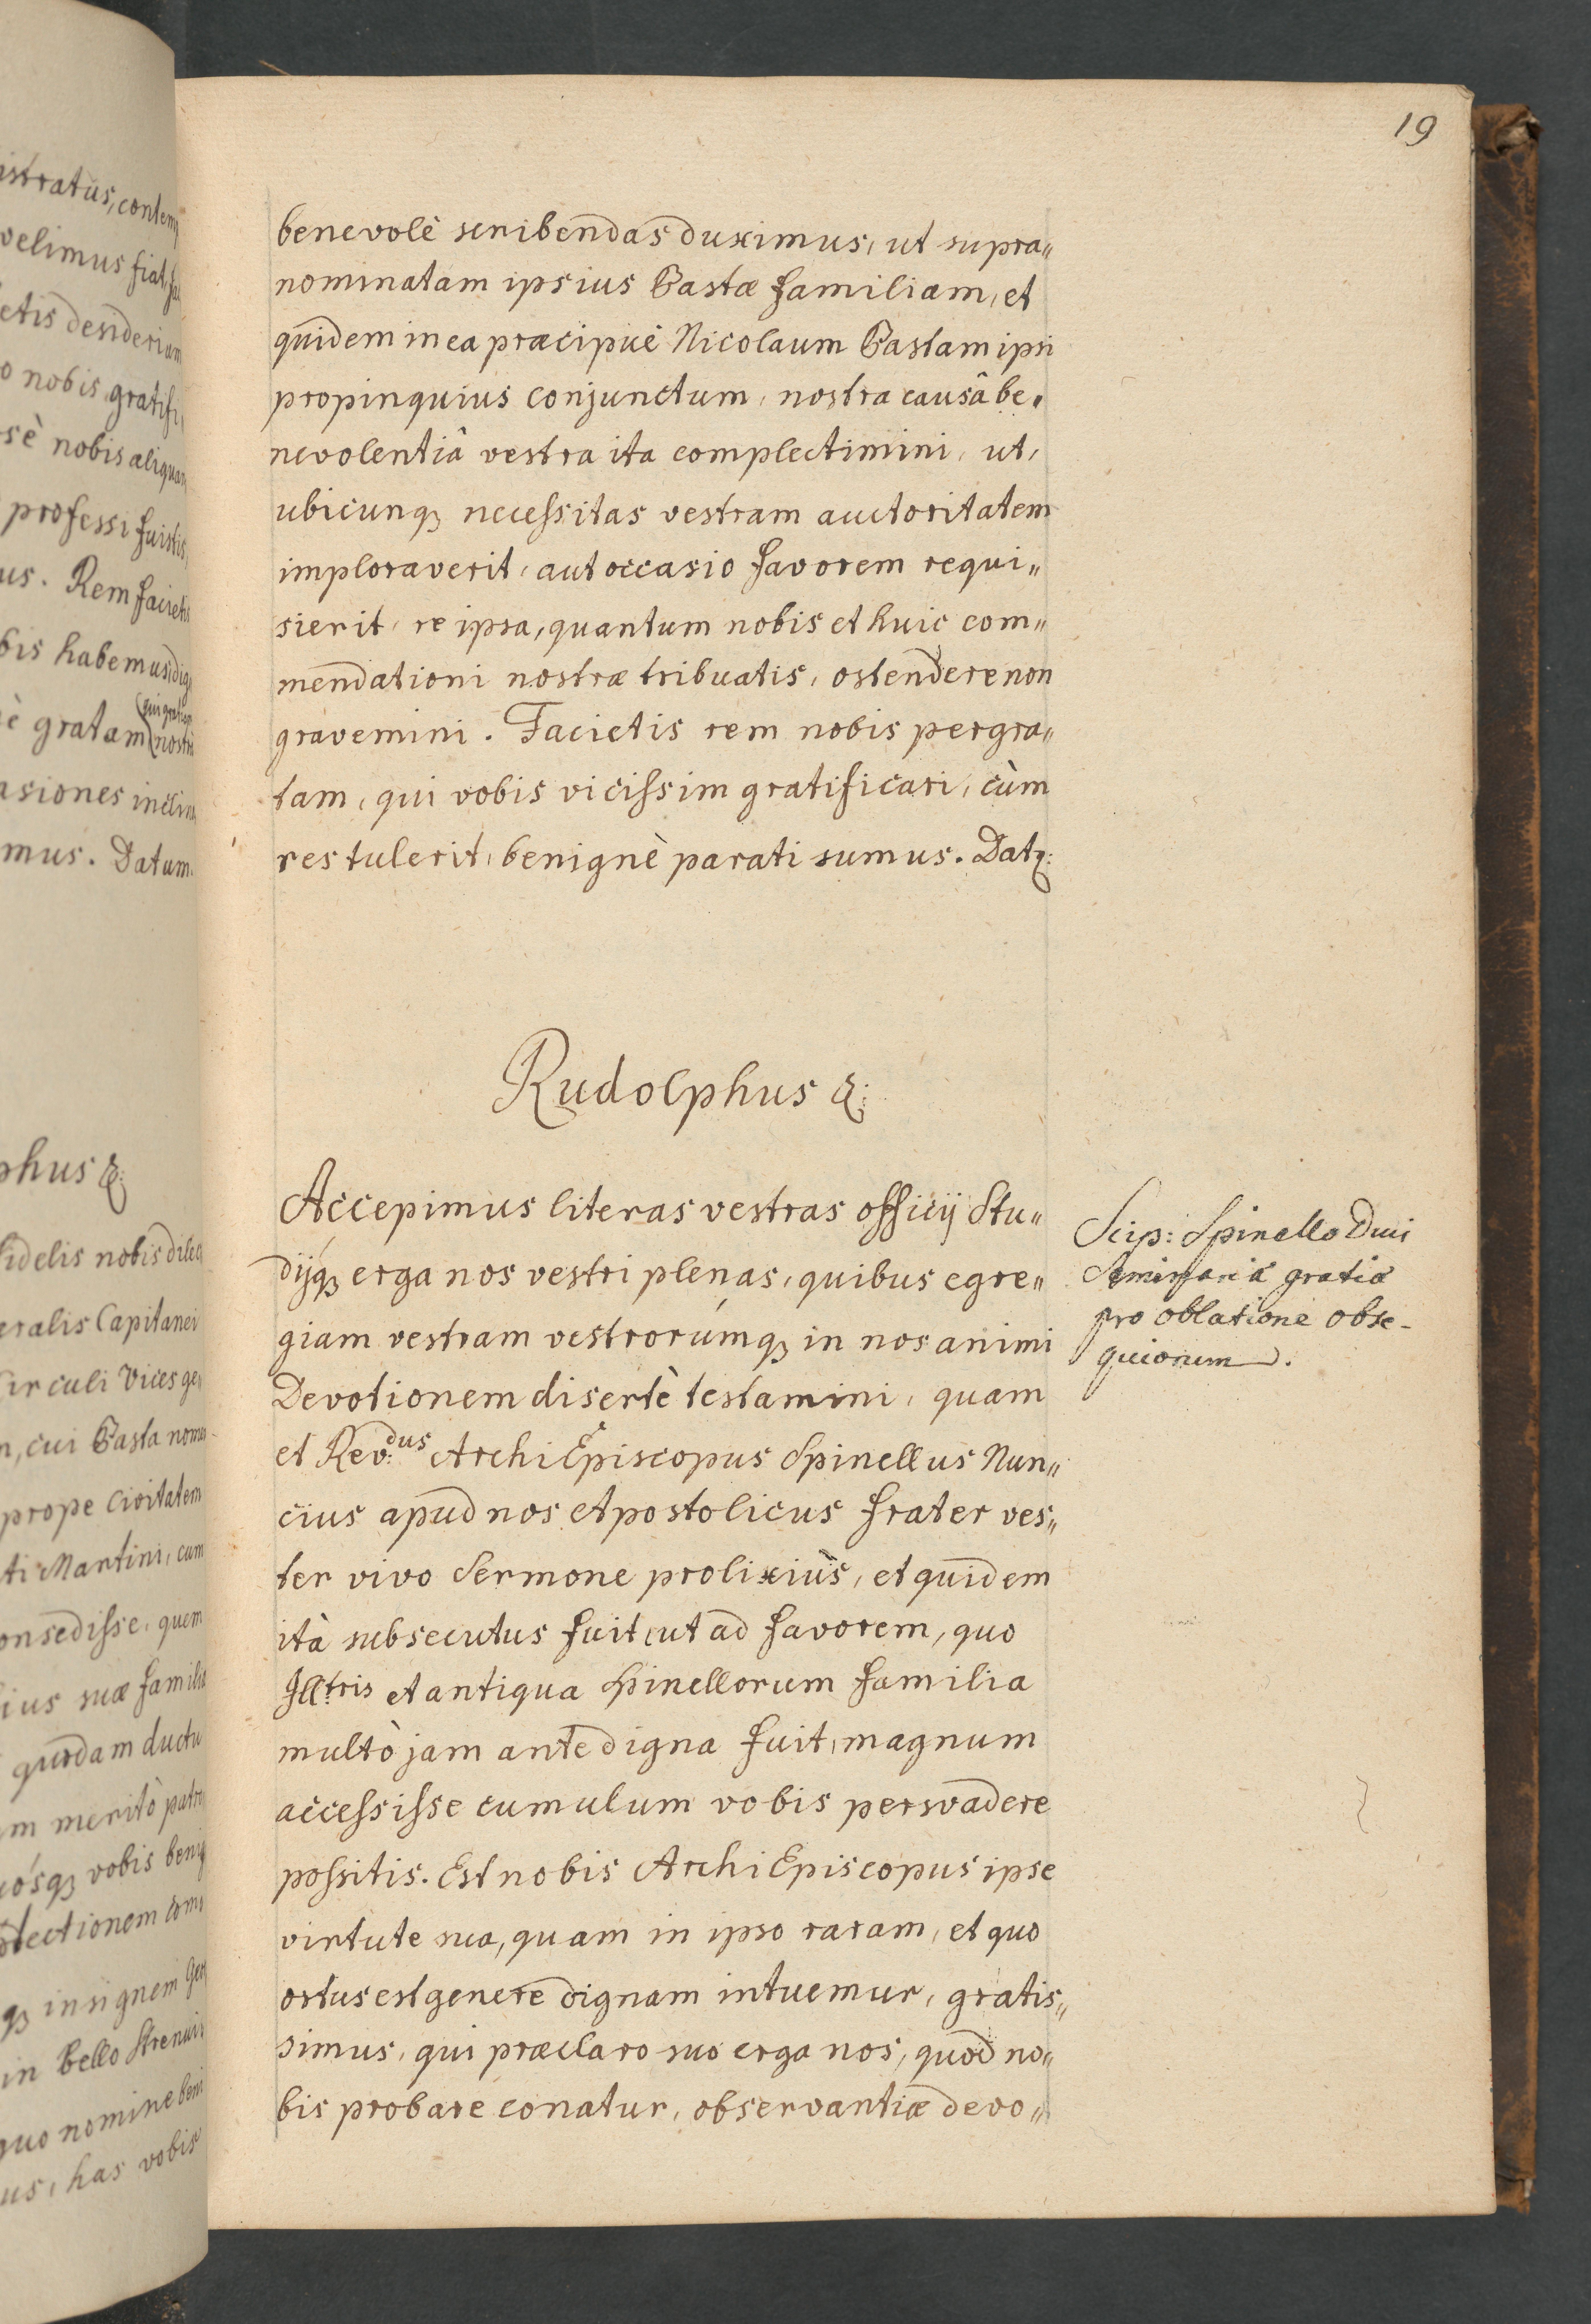 19
benevolè scribendas duximus, ut supra„
nominatam ipsius Bastæ familiam, et
quidem in ea præcipuè Nicolaum Bastam ipsi
propinquius conjunctum, nostra causâ be„
nevolentiâ vestra ita complectimini, ut,
ubicunqꝫ necessitas vestram auctoritatem
imploraverit, aut occasio favorem requi„
sierit, re ipsa, quantum nobis et huic com„
mendationi nostræ tribuatis, ostendere non
gravemini. Facietis rem nobis pergra„
tam, qui vobis vicissim gratificari, cùm
res tulerit, benignè parati sumus. Datꝫ:
Rudolphus &:
Accepimus literas vestras officij Stu„
dijqꝫ erga nos vestri plenas, quibus egre„
giam vestram vestrorúmqꝫ in nos animi
Devotionem disertè testamini, quam
et Rev:dus ArchiEpiscopus Spinellus Nun„
cius apud nos Apostolicus frater ves„
ter vivo Sermone prolixiùs, et quidem
ità subsecutus fuit, ut ad favorem, quo
Illtris et antiqua Spinellorum familia
multò jam ante digna fuit, magnum
accessisse cumulum vobis persvadere
possitis. Est nobis ArchiEpiscopus ipse
virtute sua, quam in ipso raram, et quo
ortus est genere dignam intuemur, gratis„
simus, qui præclaro suo erga nos, quod no„
bis probare conatur, observantiæ devo„
Scip: Spinello Duci
Seminariæ gratiæ
pro oblatione obse-
quiorum.
istratus, contem
velimus fiat,
etis desiderium
o nobis gratifi
sè nobis aliquam
professi fuistis,
us. Rem facietis
bis habemus dig
è gratam nostri
asiones inclin
mus. Datum.
phus &:
fidelis nobis dilec
eralis Capitanei
Circuli Vices ge
n, cui Basta nomen
prope Civitatem
ti Martini, cum
onsedisse, quem
ius suæ familiæ
quodam ductu
m meritò patro
ósqꝫ vobis benig
otectionem com
qꝫ insignem
in bello Strenui
quo nomine beni
us, has vobis